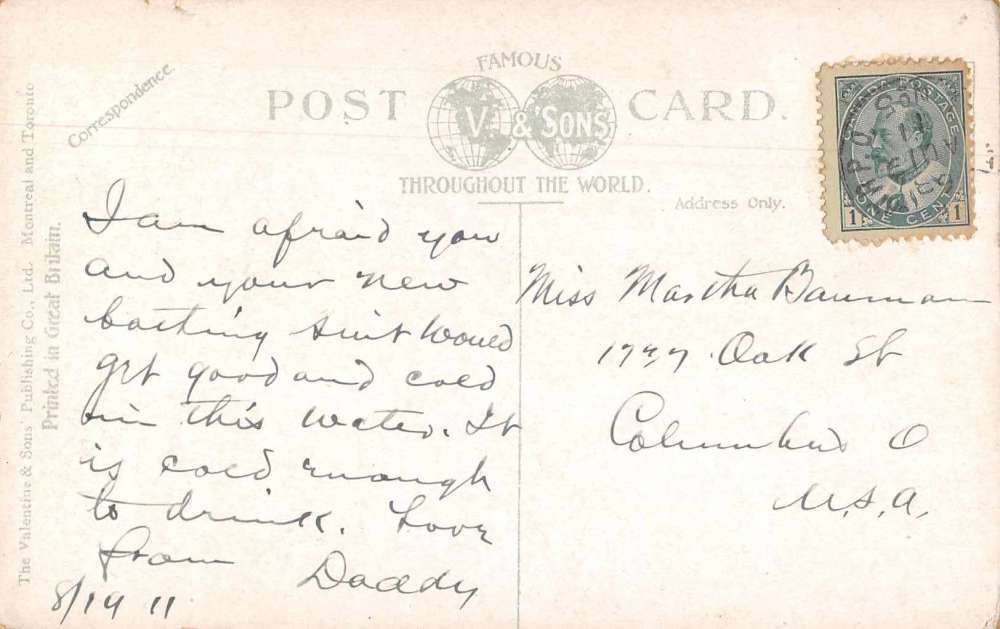 FAMOUS
POST CARD.
V. & SONS
THROUGHOUT THE WORLD.
Correspondence
Address Only.
The Valentine & Sons' Publishing Co., Ltd. Montreal and Toronto
Printed in Great Britain.
I am afraid you
and your new
bathing suit would
get good and cold
in this water. It
is cold enough
to drink. Love
from Daddy
8/19 11
Miss Martha Bauman
Oak St
Columbus O
U.S.A.
CANADA POSTAGE
1 ONE CENT 1